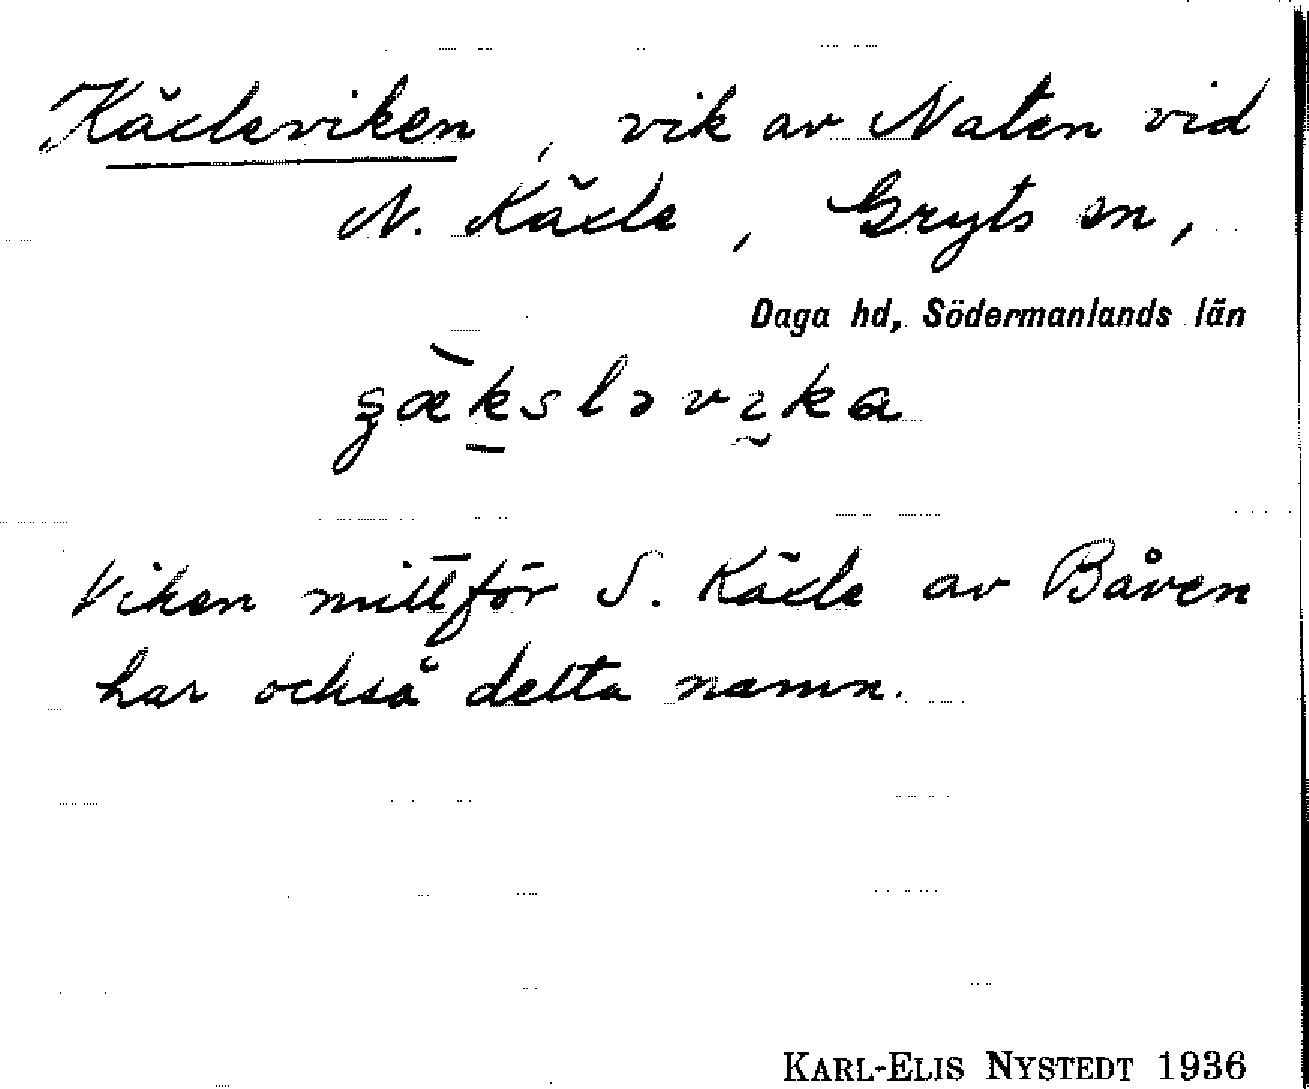 Käxleviken, vik av Naten vid
N. Käxle, Gryts sn,
Daga hd, Södermanlands län
Viken mittför S. Käxle av Båven
har också detta namn.
KARL-ELIS NYSTEDT 1936